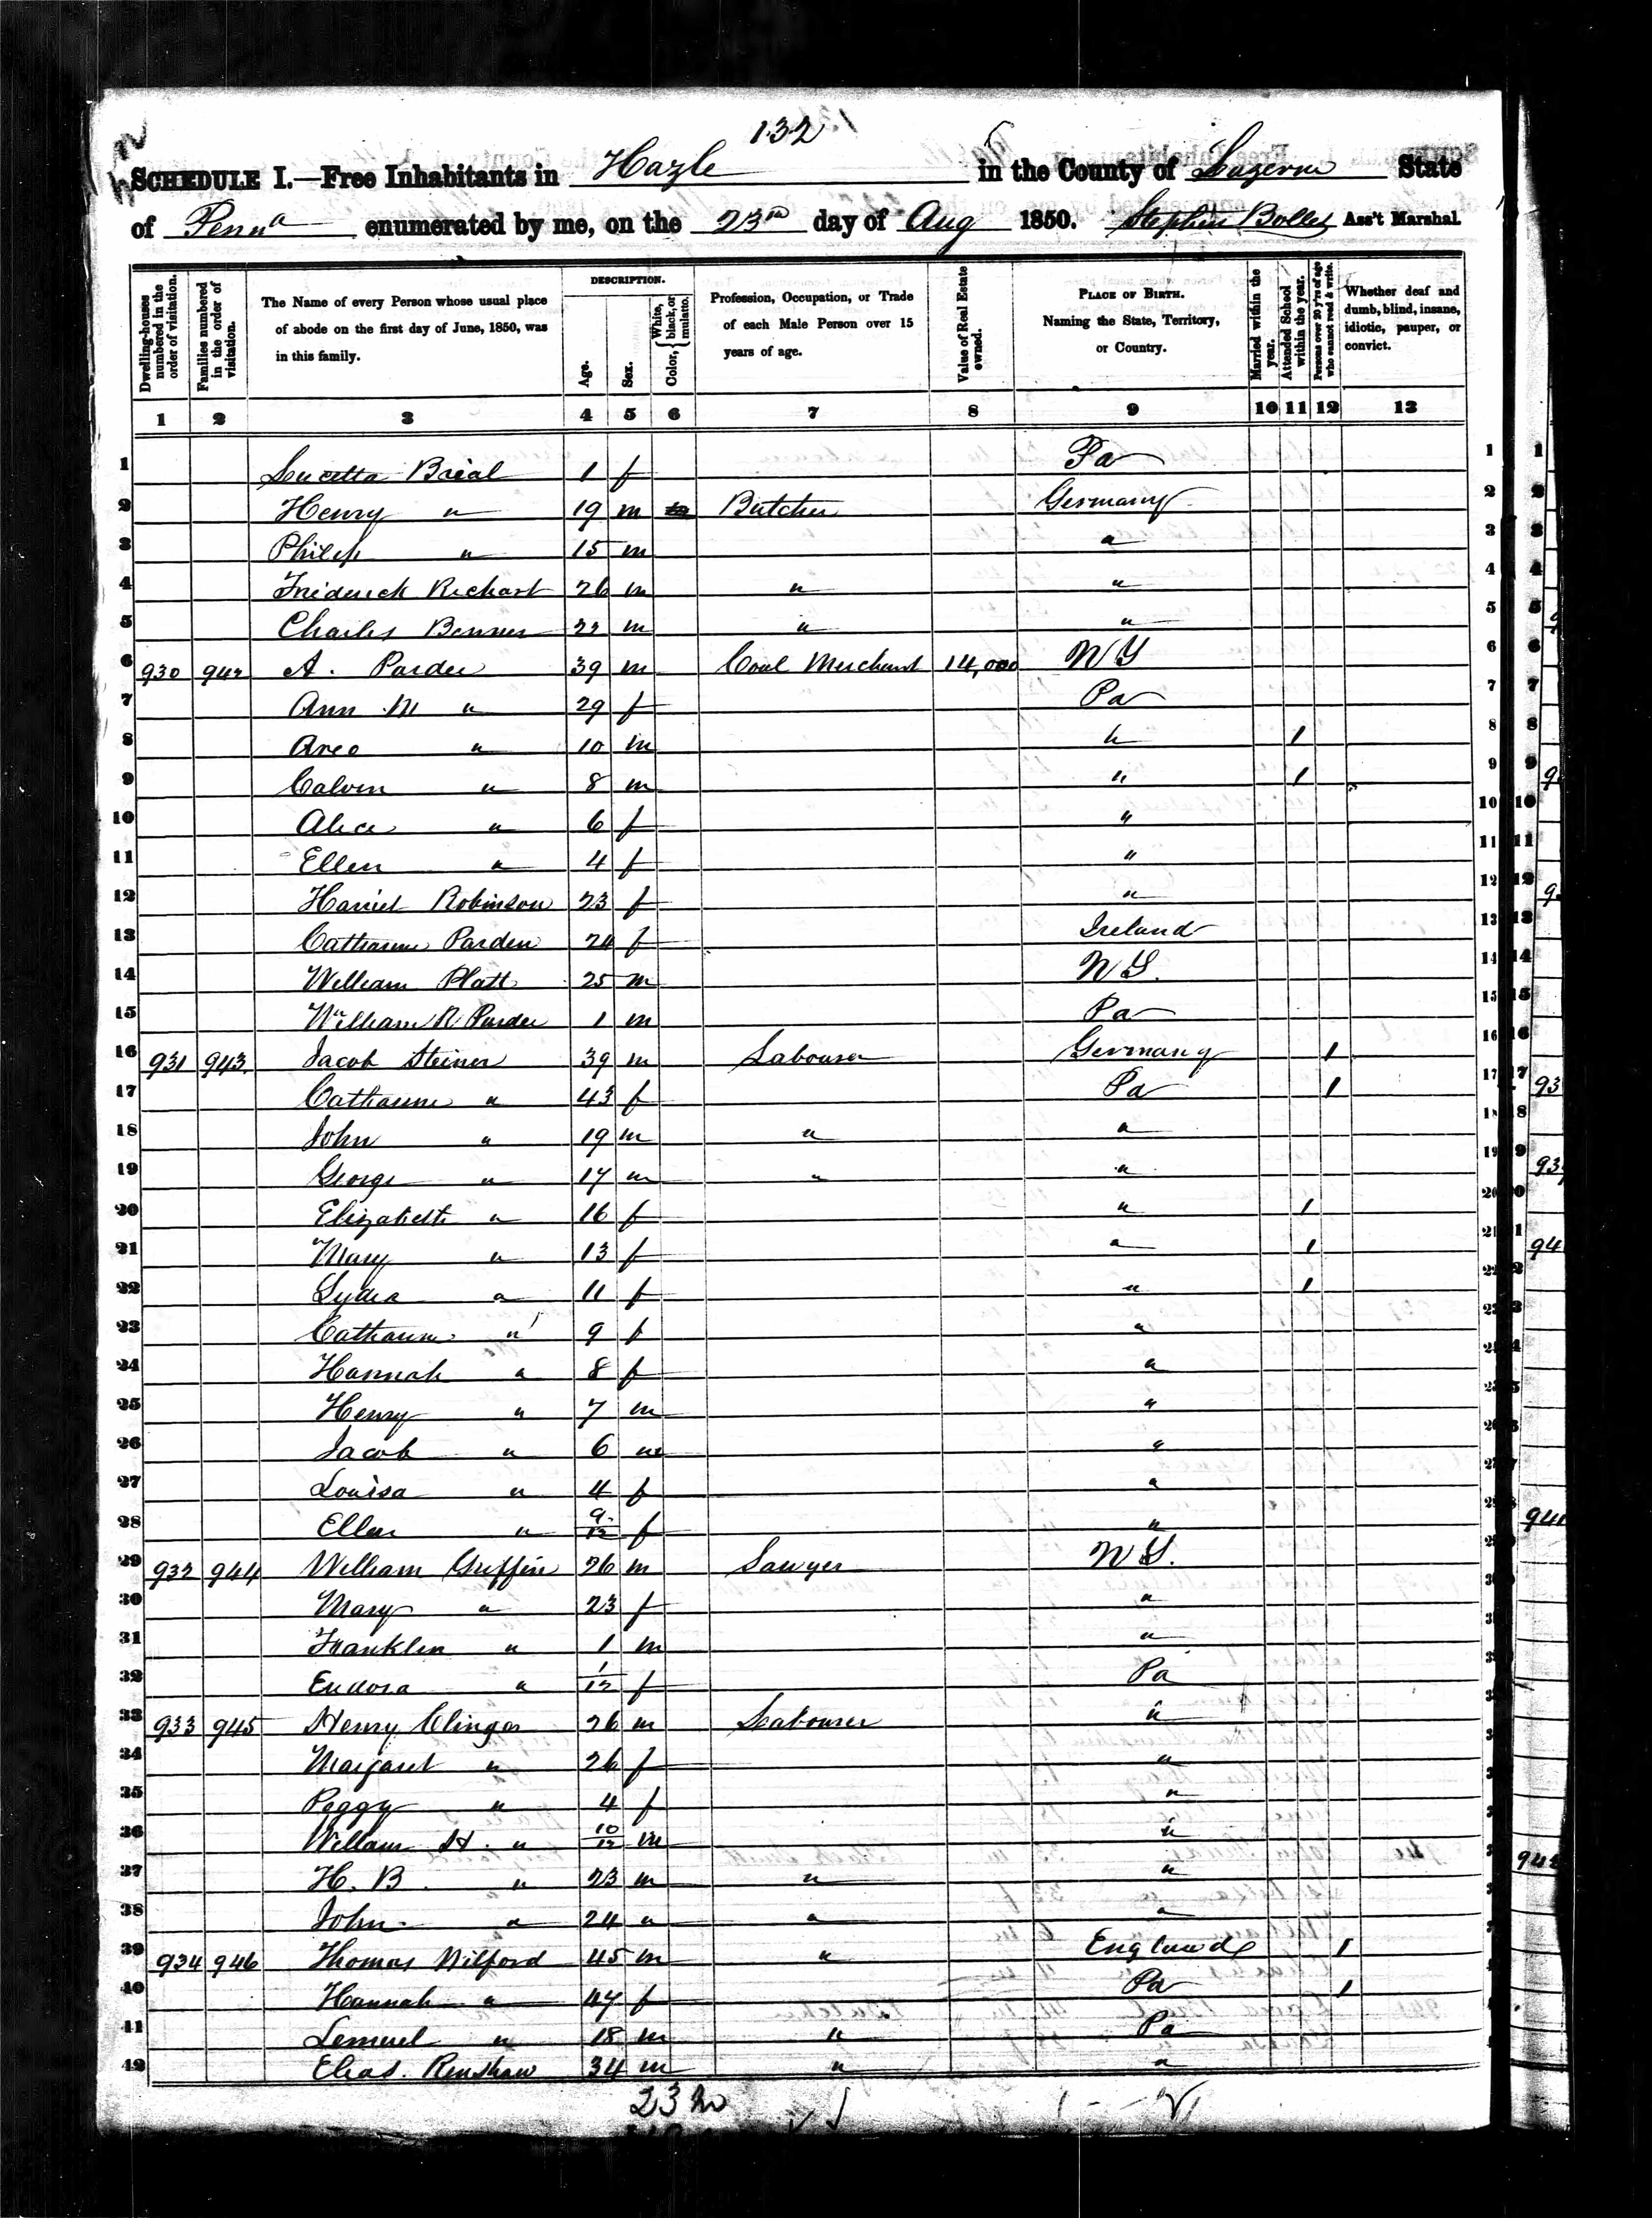 132
SCHEDULE I.—Free Inhabitants in Hazle in the County of Luzerne State
of Penna enumerated by me, on the 23rd day of Aug 1850. Stephen Bolles Ass't Marshal.
Dwelling-houses numbered in the order of visitation.
Families numbered in the order of visitation.
The Name of every Person whose usual place of abode on the first day of June, 1850, was in this family.
DESCRIPTION.
Age.
Sex.
Color, { White, black, or mulatto.
Profession, Occupation, or Trade of each Male Person over 15 years of age.
Value of Real Estate owned.
PLACE OF BIRTH. Naming the State, Territory, or Country.
Married within the year.
Attended School within the year.
Persons over 20 y'rs of age who cannot read & write.
Whether deaf and dumb, blind, insane, idiotic, pauper, or convict.
1 2 3 4 5 6 7 8 9 10 11 12 13
1 Lucetta Breal 1 f Pa 1
2 Henry " 19 m Butcher Germany 2
3 Philip " 15 m " 3
4 Frederick Richart 26 m " " 4
5 Charles Benner 22 m " " 5
6 930 942 A. Pardee 39 m Coal Merchant 14,000 N Y 6
7 Ann M " 29 f Pa 7
8 Areo " 10 m " 1 8
9 Calvin " 8 m " 1 9
10 Alice " 6 f " 10
11 Ellen " 4 f " 11
12 Harriet Robinson 23 f " 12
13 Catharine Parden 24 f Ireland 13
14 William Platt 25 m N Y. 14
15 William R Pardee 1 m Pa 15
16 931 943. Jacob Steiner 39 m Labourer Germany 1 16
17 Catharine " 43 f Pa 1 17
18 John " 19 m " " 18
19 George " 17 m " " 19
20 Elizabeth " 16 f " 1 20
21 Mary " 13 f " 1 21
22 Lydia " 11 f " 1 22
23 Catharine " 9 f "
24 Hannah " 8 f "
25 Henry " 7 m "
26 Jacob " 6 m "
27 Louisa " 4 f "
28 Ellen " 9/12 f "
29 932 944 William Griffin 26 m Sawyer N Y.
30 Mary " 23 f "
31 Franklin " 1 m "
32 Eudora " 1/12 f Pa
33 933 945 Henry Clinger 26 m Labourer "
34 Margaret " 26 f "
35 Peggy " 4 f "
36 William H. " 10/12 m "
37 H. B. " 23 m " "
38 John " 24 " " "
39 934 946 Thomas Wilford 45 m " England 1
40 Hannah " 47 f Pa 1
41 Lemuel " 18 m " Pa
42 Elias Renshaw 34 m " "